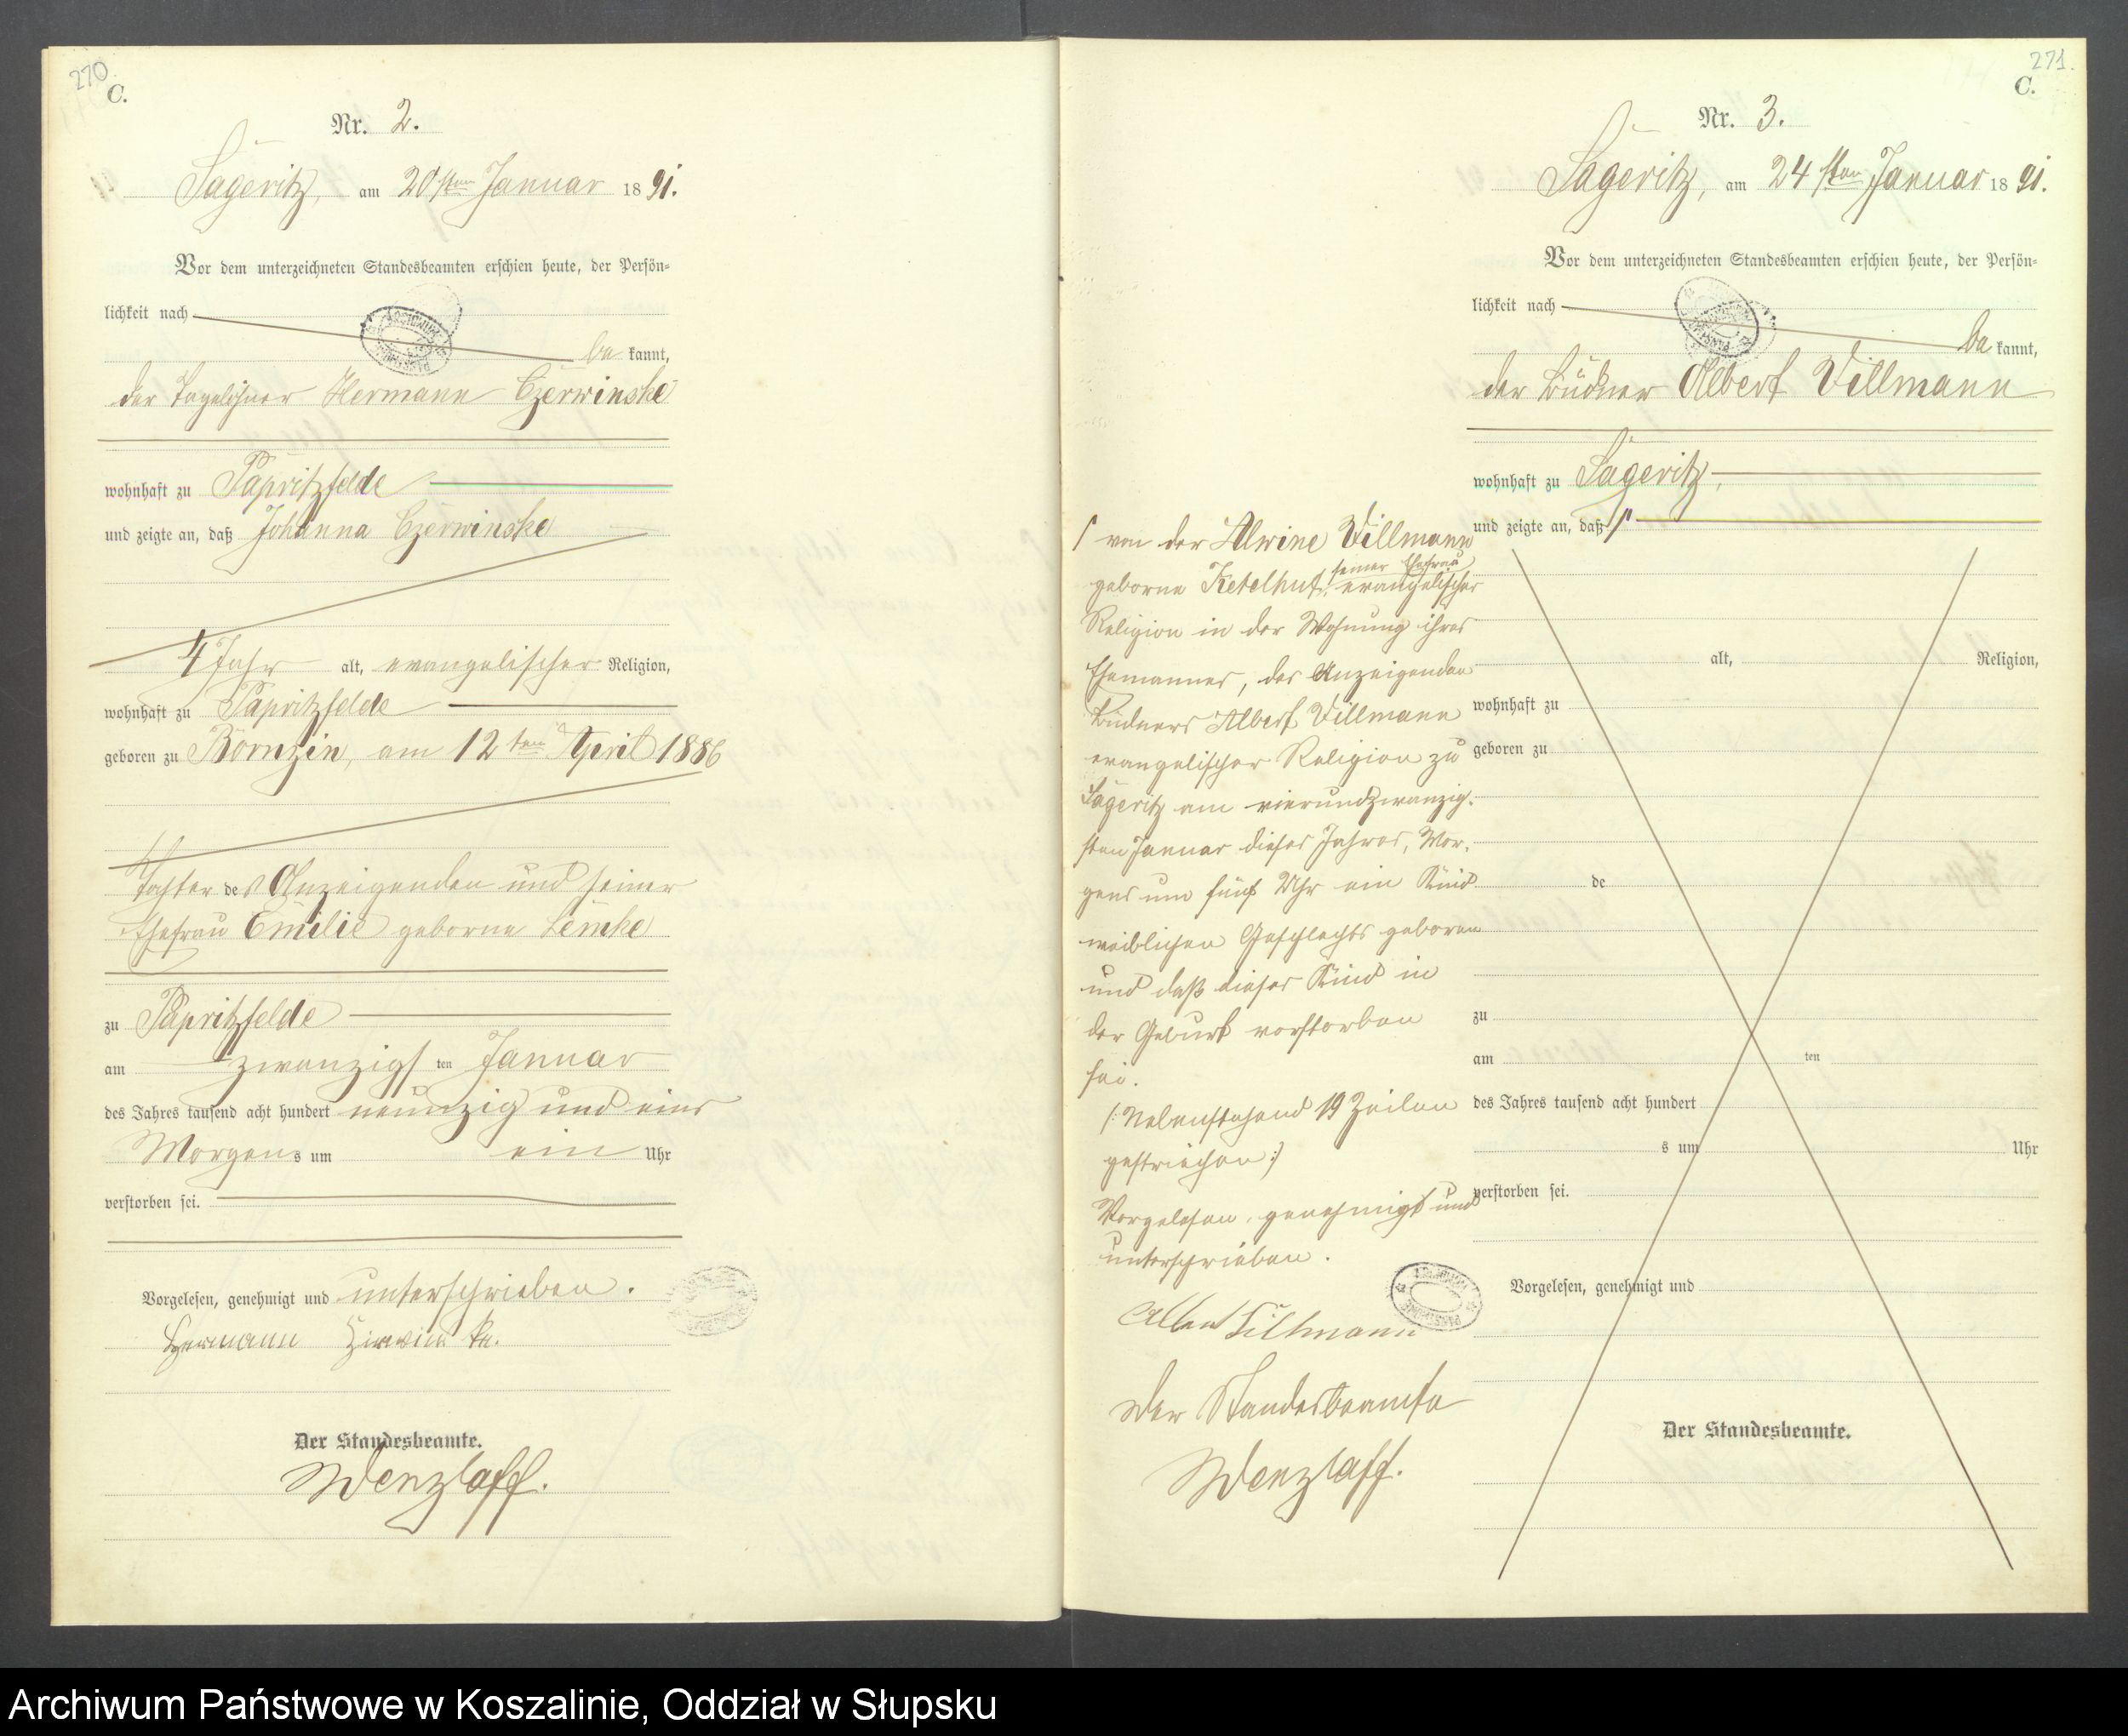 270
C.
Nr. 2.
Sageritz, am 20sten Januar 1891.
Vor dem unterzeichneten Standesbeamten erschien heute, der Persön-
lichkeit nach
be kannt,
der Tagelöhner Hermann Czerwinske
wohnhaft zu Papritzfelde
und zeigte an, daß Johanna Czerwinske
4 Jahr alt, evangelischer Religion,
wohnhaft zu Papritzfelde
geboren zu Börnzin, am 12ten April 1886
Tochter des Anzeigenden und seiner
Ehefrau Emilie geborne Lemke
zu Papritzfelde
am zwanzigsten Januar
des Jahres tausend acht hundert neunzig und eins
Morgens um ein Uhr
verstorben sei.
Vorgelesen, genehmigt und unterschrieben.
Hermann
Der Standesbeamte.
Wenzlaff.
271.
C.
Nr. 3.
Sageritz, am 24sten Januar 1891.
Vor dem unterzeichneten Standesbeamten erschien heute, der Persön-
lichkeit nach
be kannt,
der Büdner Albert Villmann
wohnhaft zu Sageritz,
und zeigte an, daß
von der Alwine Villmann
geborne Ketelhut, seiner Ehefrau, evangelischer
Religion in der Wohnung ihres
Ehemannes, des Anzeigenden
Büdners Albert Villmann
evangelischer Religion zu
Sageritz am vierundzwanzig-
sten Januar dieses Jahres, Mor-
gens um fünf Uhr ein Kind
weiblichen Geschlechts geboren
und daß dieses Kind in
der Geburt verstorben
sei.
/: Nebenstehend 19 Zeilen
gestrichen :/
Vorgelesen, genehmigt und
unterschrieben.
Albert Villmann
Der Standesbeamte
Wenzlaff.
alt, Religion,
wohnhaft zu
geboren zu
de
zu
am ten
des Jahres tausend acht hundert
s um Uhr
verstorben sei.
Vorgelesen, genehmigt und
Der Standesbeamte.
Archiwum Państwowe w Koszalinie, Oddział w Słupsku